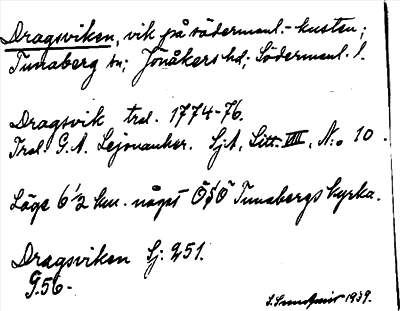 Dragsviken, vik på södermanl.-kusten;
Tunaberg sn; Jönåkers hd; Södermanl. l.
Dragsvik trol. 1774-76.
Trol. G. A. Lejonanker. SjA, Litt. VIII, N:o 10.
Läge 6 1/2 km. något ÖSÖ Tunabergs kyrka.
Dragsviken Sj: 251.
G.56-
1939.